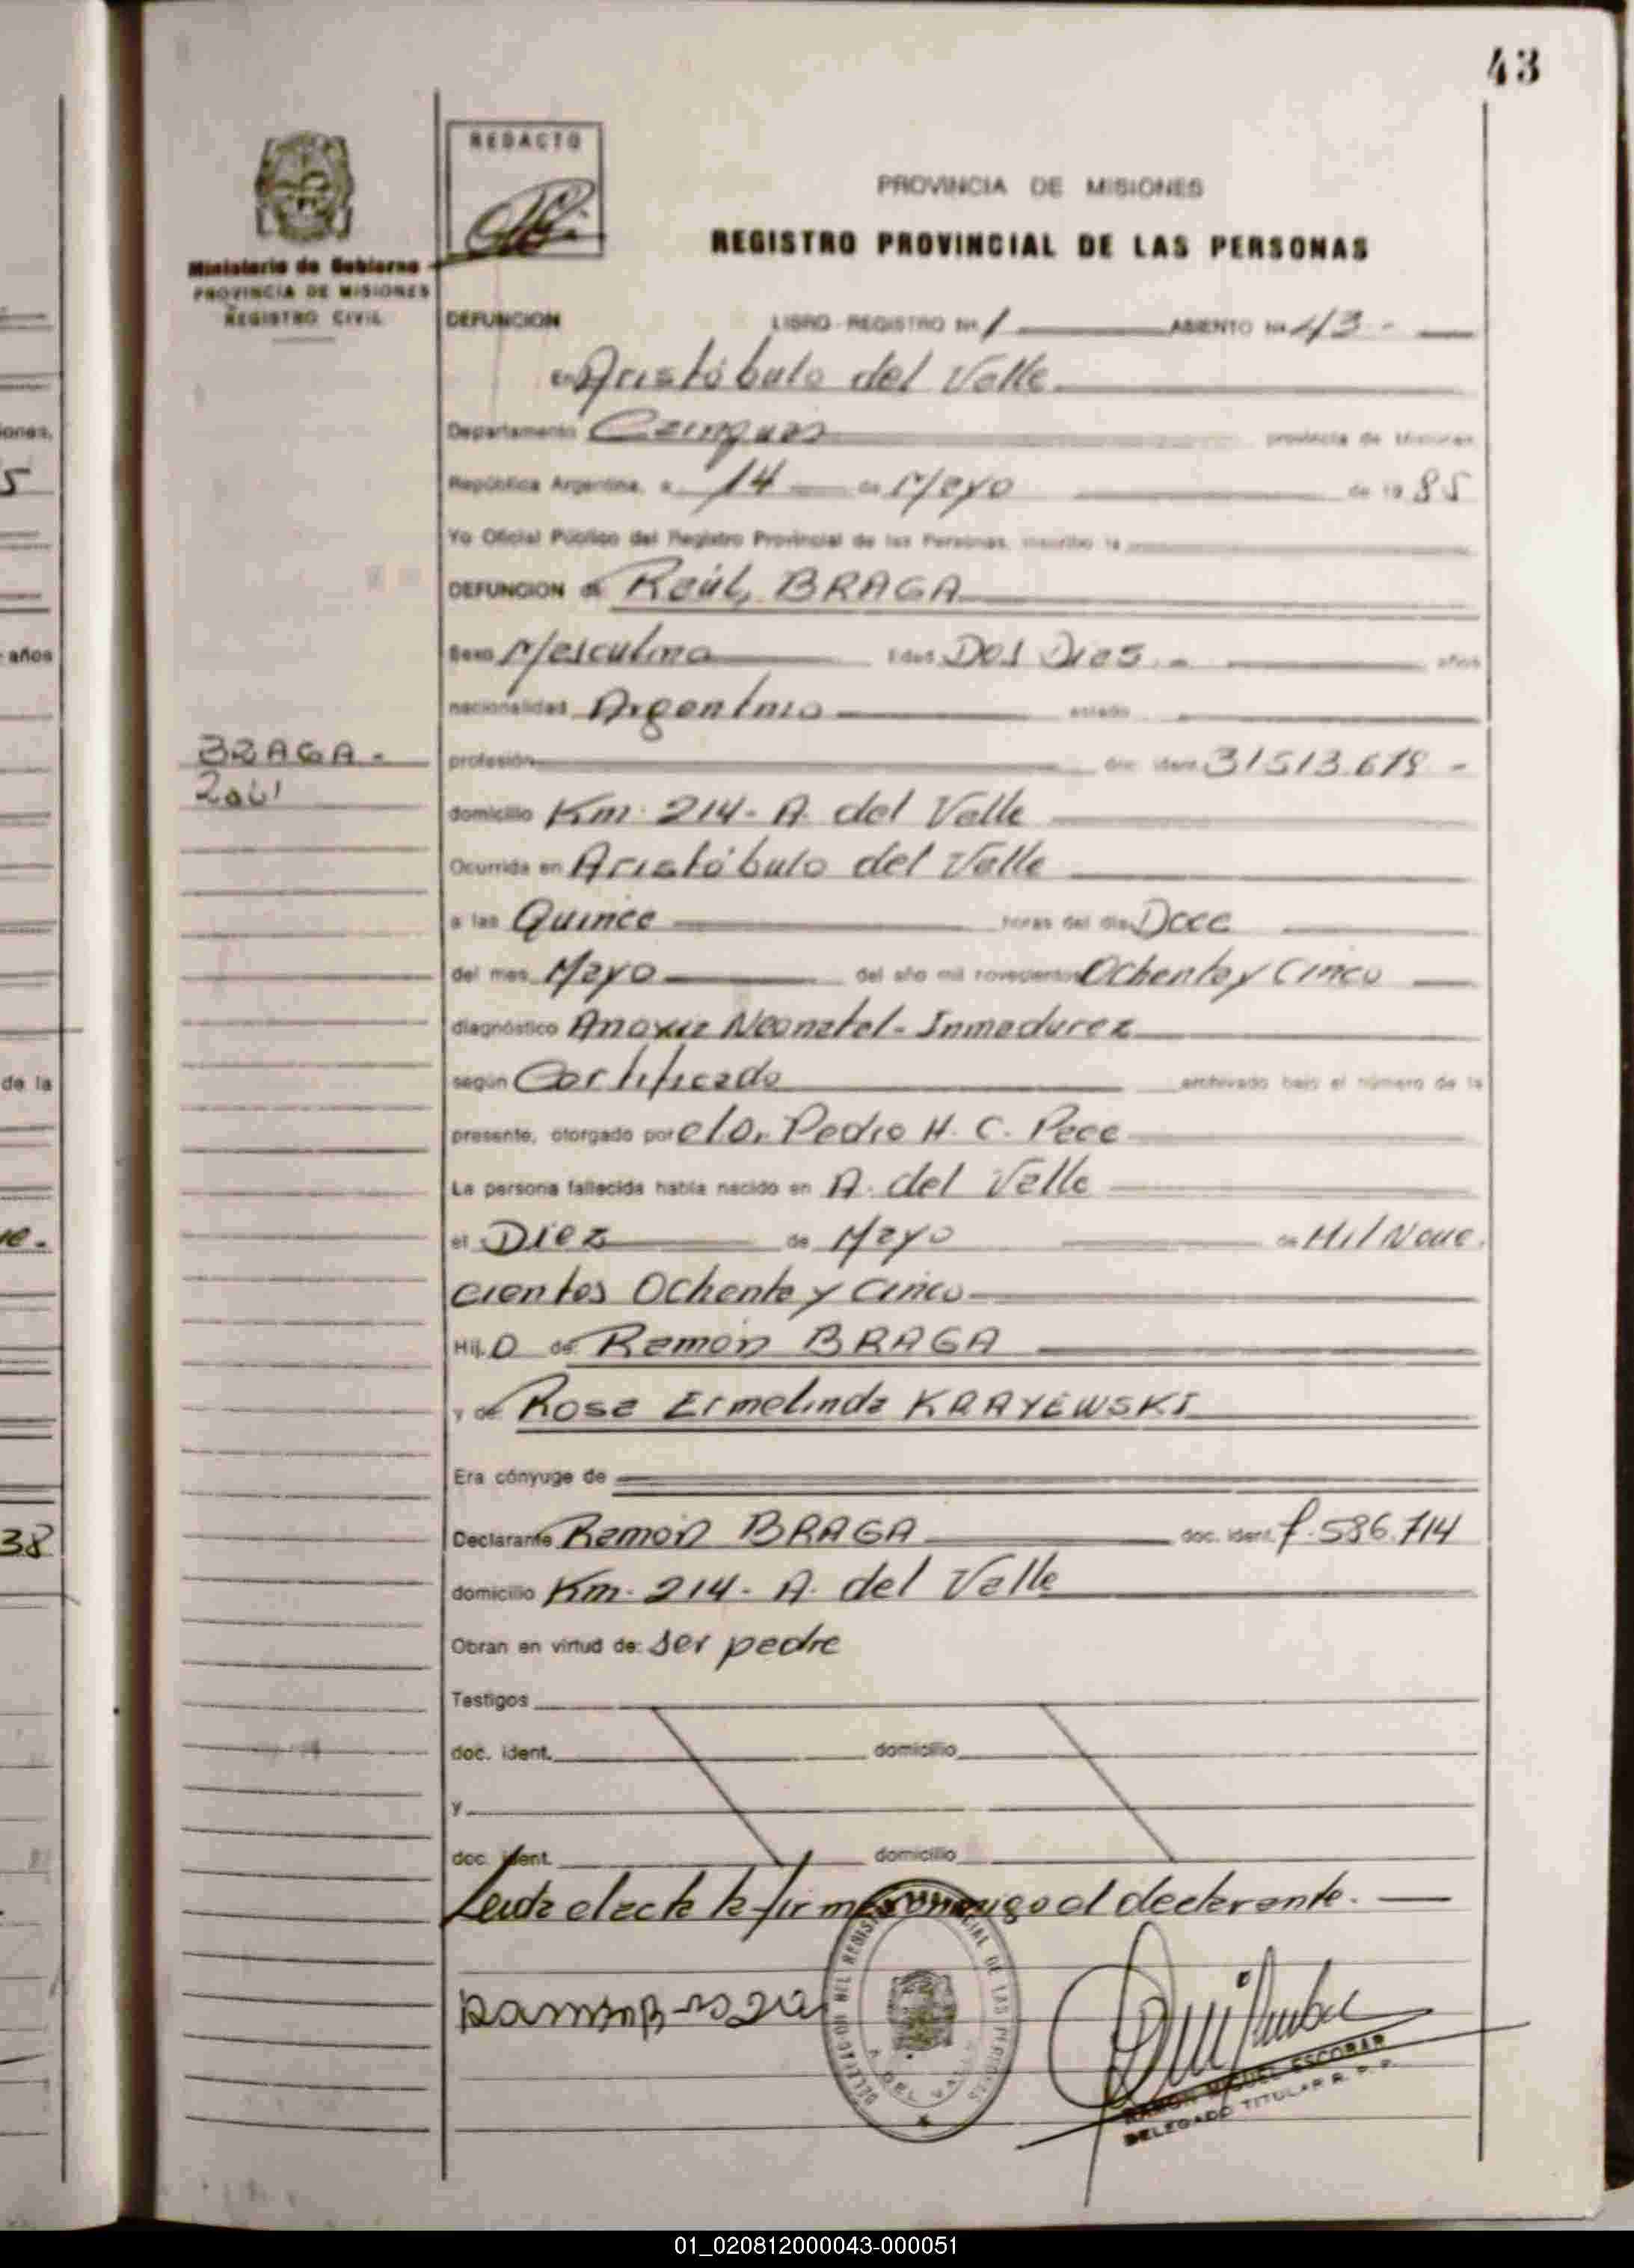 43
REDACTO
PROVINCIA DE MISIONES
REGISTRO PROVINCIAL DE LAS PERSONAS
Ministerio de Gobierno
PROVINCIA DE MISIONES
REGISTRO CIVIL
DEFUNCION LIBRO-REGISTRO Nº 1 ASIENTO Nº 43-
en Aristóbulo del Valle
Departamento Cainguas provincia de Misiones,
República Argentina, a 14 de Mayo de 1985
Yo Oficial Público del Registro Provincial de las Personas, inscribo la
DEFUNCION de Raúl, BRAGA
Sexo Masculino Edad Dos Dias.- años
nacionalidad Argentino estado
BRAGA-
Raúl
profesión doc. ident. 31.513.619-
domicilio Km. 214- A. del Valle
Ocurrida en Aristóbulo del Valle
a las Quince horas del día Doce
del mes Mayo del año mil novecientos Ochenta y Cinco
diagnóstico Anoxia Neonatal- Inmadurez
según Certificado archivado bajo el número de la
presente, otorgado por el Dr. Pedro H. C. Pece
La persona fallecida había nacido en A. del Valle
el Diez de Mayo de Mil Nove.
cientos Ochenta y Cinco
Hijo de: Ramón BRAGA
y de: Rosa Ermelinda KRAYEWSKI
Era cónyuge de
Declarante Ramón BRAGA doc. ident. 7.586.714
domicilio Km. 214- A. del Valle
Obran en virtud de: ser padre
Testigos
doc. ident. domicilio
y
doc. ident. domicilio
Leida el acta la firma conmigo el declarante.
DELEGACION DEL REGISTRO PROVINCIAL DE LAS PERSONAS
A. DEL VALLE
RAMON MIGUEL ESCOBAR
DELEGADO TITULAR R. P. P.
años
de la
38
01_020812000043-000051